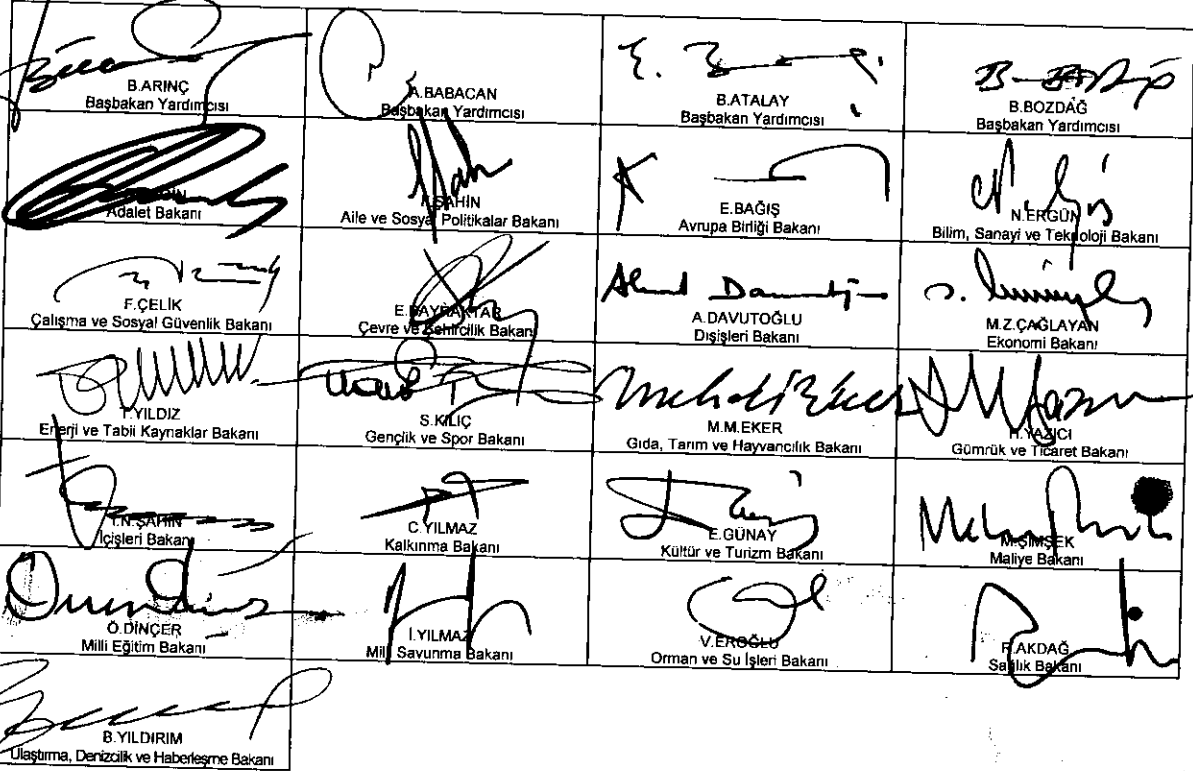 B.ARINÇ
Başbakan Yardımcısı
A.BABACAN
Başbakan Yardımcısı
B.ATALAY
Başbakan Yardımcısı
B.BOZDAĞ
Başbakan Yardımcısı
Adalet Bakanı
F.ŞAHİN
Aile ve Sosyal Politikalar Bakanı
E.BAĞIŞ
Avrupa Birliği Bakanı
N.ERGÜN
Bilim, Sanayi ve Teknoloji Bakanı
F.ÇELİK
Çalışma ve Sosyal Güvenlik Bakanı
E.BAYRAKTAR
Çevre ve Şehircilik Bakanı
A.DAVUTOĞLU
Dışişleri Bakanı
M.Z.ÇAĞLAYAN
Ekonomi Bakanı
T.YILDIZ
Enerji ve Tabii Kaynaklar Bakanı
S.KILIÇ
Gençlik ve Spor Bakanı
M.M.EKER
Gıda, Tarım ve Hayvancılık Bakanı
H.YAZICI
Gümrük ve Ticaret Bakanı
İ.N.ŞAHİN
İçişleri Bakanı
C.YILMAZ
Kalkınma Bakanı
E.GÜNAY
Kültür ve Turizm Bakanı
M.ŞİMŞEK
Maliye Bakanı
Ö.DİNÇER
Milli Eğitim Bakanı
İ.YILMAZ
Milli Savunma Bakanı
V.EROĞLU
Orman ve Su İşleri Bakanı
R.AKDAĞ
Sağlık Bakanı
B.YILDIRIM
Ulaştırma, Denizcilik ve Haberleşme Bakanı